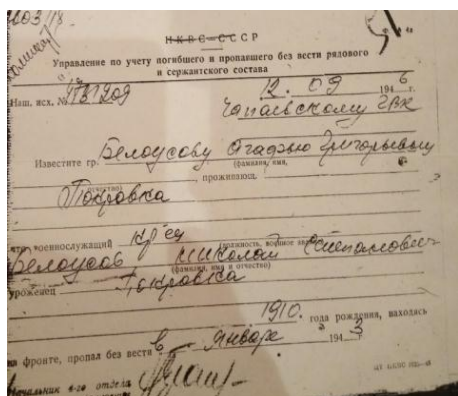 НКВС-СССР
Управление по учету погибшего и пропавшего без вести рядового
и сержантского состава
Наш. исх. № 12. 09 1946 г.
Чапаевскому ГВК
Известите гр. Белоусову Агафью Григорьевну
(фамилия, имя,
отчество) , прожива
Покровка
военнослужащий кр-ец
звание)
Белоусов Николай Степанович
(фамилия, имя и отчество)
уроженец Покровка
1910. года рождения, находясь
на фронте, пропал без вести в январе 1943 г.
Начальник 4-го отдела